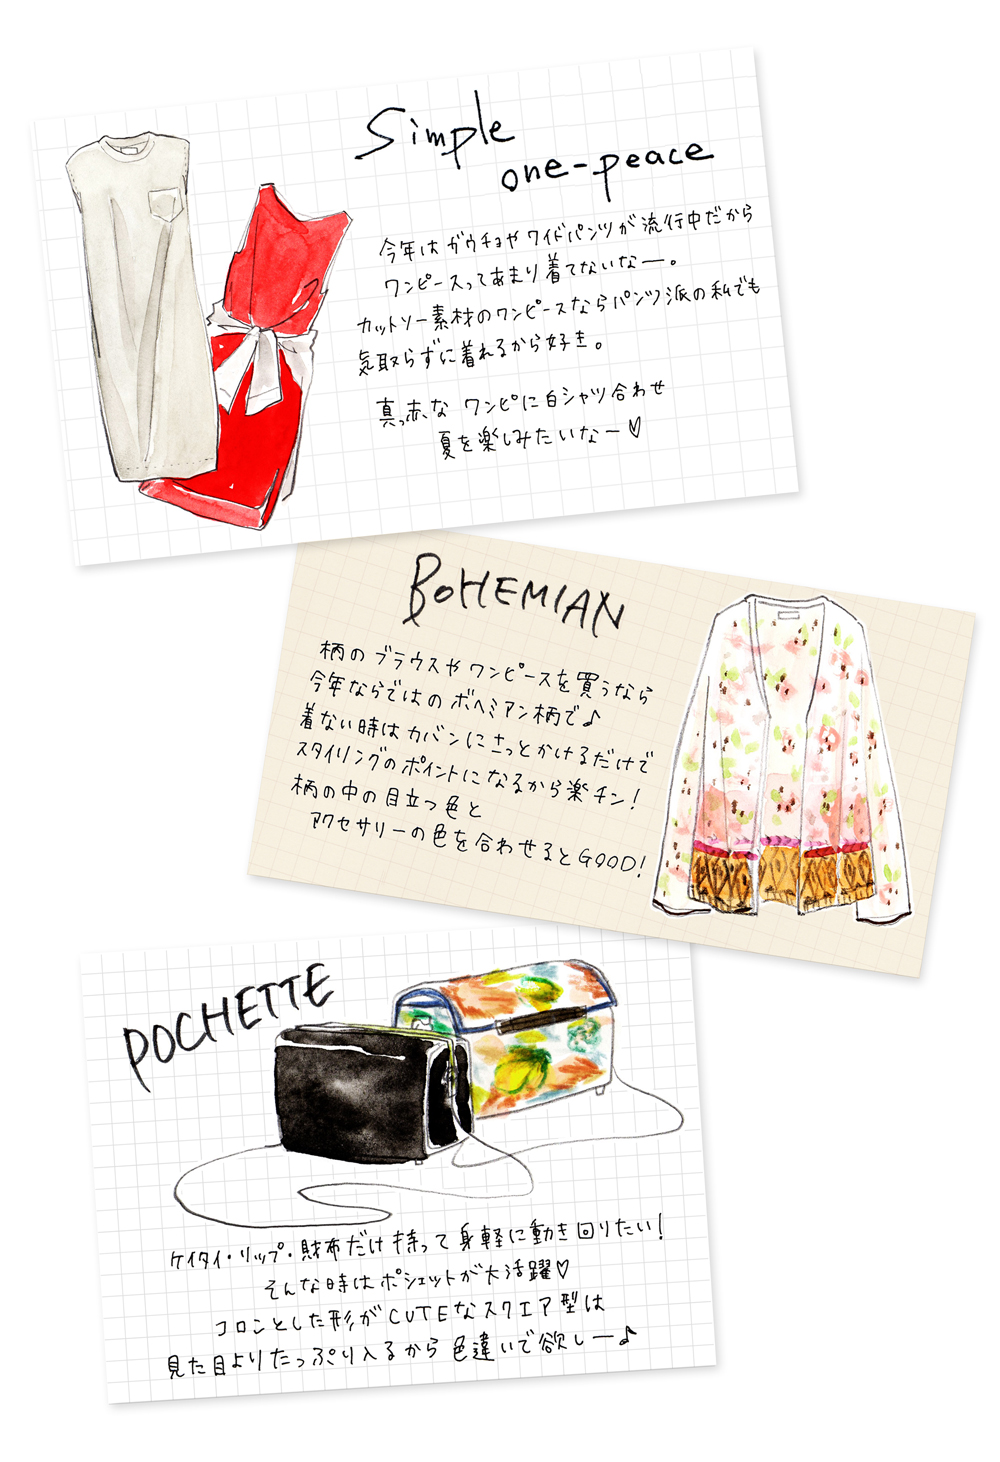 Simple
one-peace
今年はガウチョやワイドパンツが流行中だから
ワンピースってあまり着てないなー。
カットソー素材のワンピースならパンツ派の私でも
気取らずに着れるから好き。
真っ赤な ワンピに白シャツ合わせ
夏を楽しみたいなー♡
BOHEMIAN
柄のブラウスやワンピースを買うなら
今年ならではのボヘミアン柄で♪
着ない時はカバンにさっとかけるだけで
スタイリングのポイントになるから楽チン!
柄の中の目立つ色と
アクセサリーの色を合わせるとGOOD!
POCHETTE
ケイタイ・リップ・財布だけ持って身軽に動き回りたい!
そんな時はポシェットが大活躍♡
コロンとした形がCUTEなスクエア型は
見た目よりたっぷり入るから色違いで欲しー♪